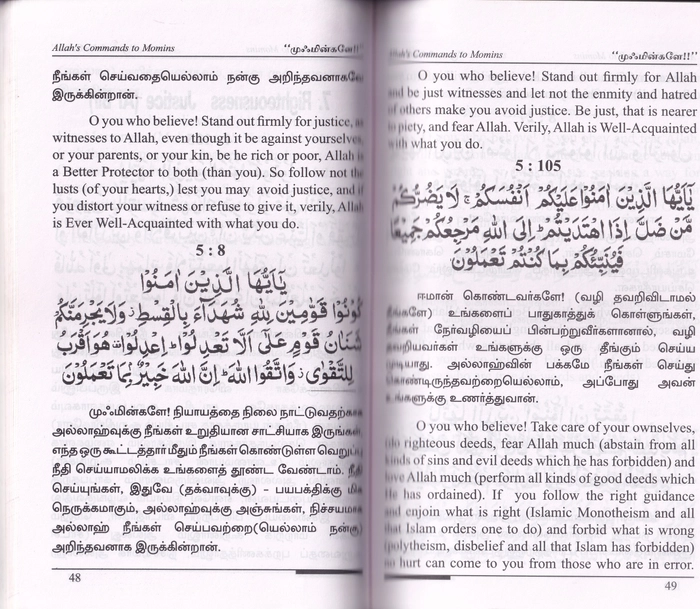 Allah's Commands to Momins “முஃமின்களே!!”
நீங்கள் செய்வதையெல்லாம் நன்கு அறிந்தவனாகவே
இருக்கின்றான்.
O you who believe! Stand out firmly for justice, as
witnesses to Allah, even though it be against yourselves,
or your parents, or your kin, be he rich or poor, Allah is
a Better Protector to both (than you). So follow not the
lusts (of your hearts,) lest you may avoid justice, and if
you distort your witness or refuse to give it, verily, Allah
is Ever Well-Acquainted with what you do.
5 : 8
يٰۤاَيُّهَا الَّذِيْنَ اٰمَنُوْا
كُوْنُوْا قَوّٰمِيْنَ لِلّٰهِ شُهَدَآءَ بِالْقِسْطِ ز وَلَا يَجْرِمَنَّكُمْ
شَنَاٰنُ قَوْمٍ عَلٰۤى اَلَّا تَعْدِلُوْا ؕ اِعْدِلُوْا قف هُوَ اَقْرَبُ
لِلتَّقْوٰى ز وَاتَّقُوا اللّٰهَ ؕ اِنَّ اللّٰهَ خَبِيْرٌۢ بِمَا تَعْمَلُوْنَ
முஃமின்களே! நியாயத்தை நிலை நாட்டுவதற்காக
அல்லாஹ்வுக்கு நீங்கள் உறுதியான சாட்சியாக இருங்கள்.
எந்த ஒரு கூட்டத்தார் மீதும் நீங்கள் கொண்டுள்ள வெறுப்பு
நீதி செய்யாமலிக்க உங்களைத் தூண்ட வேண்டாம். நீதி
செய்யுங்கள், இதுவே (தக்வாவுக்கு) - பயபக்திக்கு மிக
நெருக்கமாகும், அல்லாஹ்வுக்கு அஞ்சுங்கள், நிச்சயமாக
அல்லாஹ் நீங்கள் செய்பவற்றை(யெல்லாம் நன்கு)
அறிந்தவனாக இருக்கின்றான்.
48
Allah's Commands to Momins “முஃமின்களே!!”
O you who believe! Stand out firmly for Allah
and be just witnesses and let not the enmity and hatred
of others make you avoid justice. Be just, that is nearer
to piety, and fear Allah. Verily, Allah is Well-Acquainted
with what you do.
5 : 105
يٰۤاَيُّهَا الَّذِيْنَ اٰمَنُوْا عَلَيْكُمْ اَنْفُسَكُمْ ۚ لَا يَضُرُّكُمْ
مَّنْ ضَلَّ اِذَا اهْتَدَيْتُمْ ؕ اِلَى اللّٰهِ مَرْجِعُكُمْ جَمِيْعًا
فَيُنَبِّئُكُمْ بِمَا كُنْتُمْ تَعْمَلُوْنَ
ஈமான் கொண்டவர்களே! (வழி தவறிவிடாமல்
நீங்களே) உங்களைப் பாதுகாத்துக் கொள்ளுங்கள்,
நீங்கள் நேர்வழியைப் பின்பற்றுவீர்களானால், வழி
தவறியவர்கள் உங்களுக்கு ஒரு தீங்கும் செய்ய
முடியாது. அல்லாஹ்வின் பக்கமே நீங்கள் செய்து
கொண்டிருந்தவற்றையெல்லாம், அப்போது அவன்
உங்களுக்கு உணர்த்துவான்.
O you who believe! Take care of your ownselves,
do righteous deeds, fear Allah much (abstain from all
kinds of sins and evil deeds which he has forbidden) and
love Allah much (perform all kinds of good deeds which
He has ordained). If you follow the right guidance
and enjoin what is right (Islamic Monotheism and all
that Islam orders one to do) and forbid what is wrong
(polytheism, disbelief and all that Islam has forbidden)
no hurt can come to you from those who are in error.
49